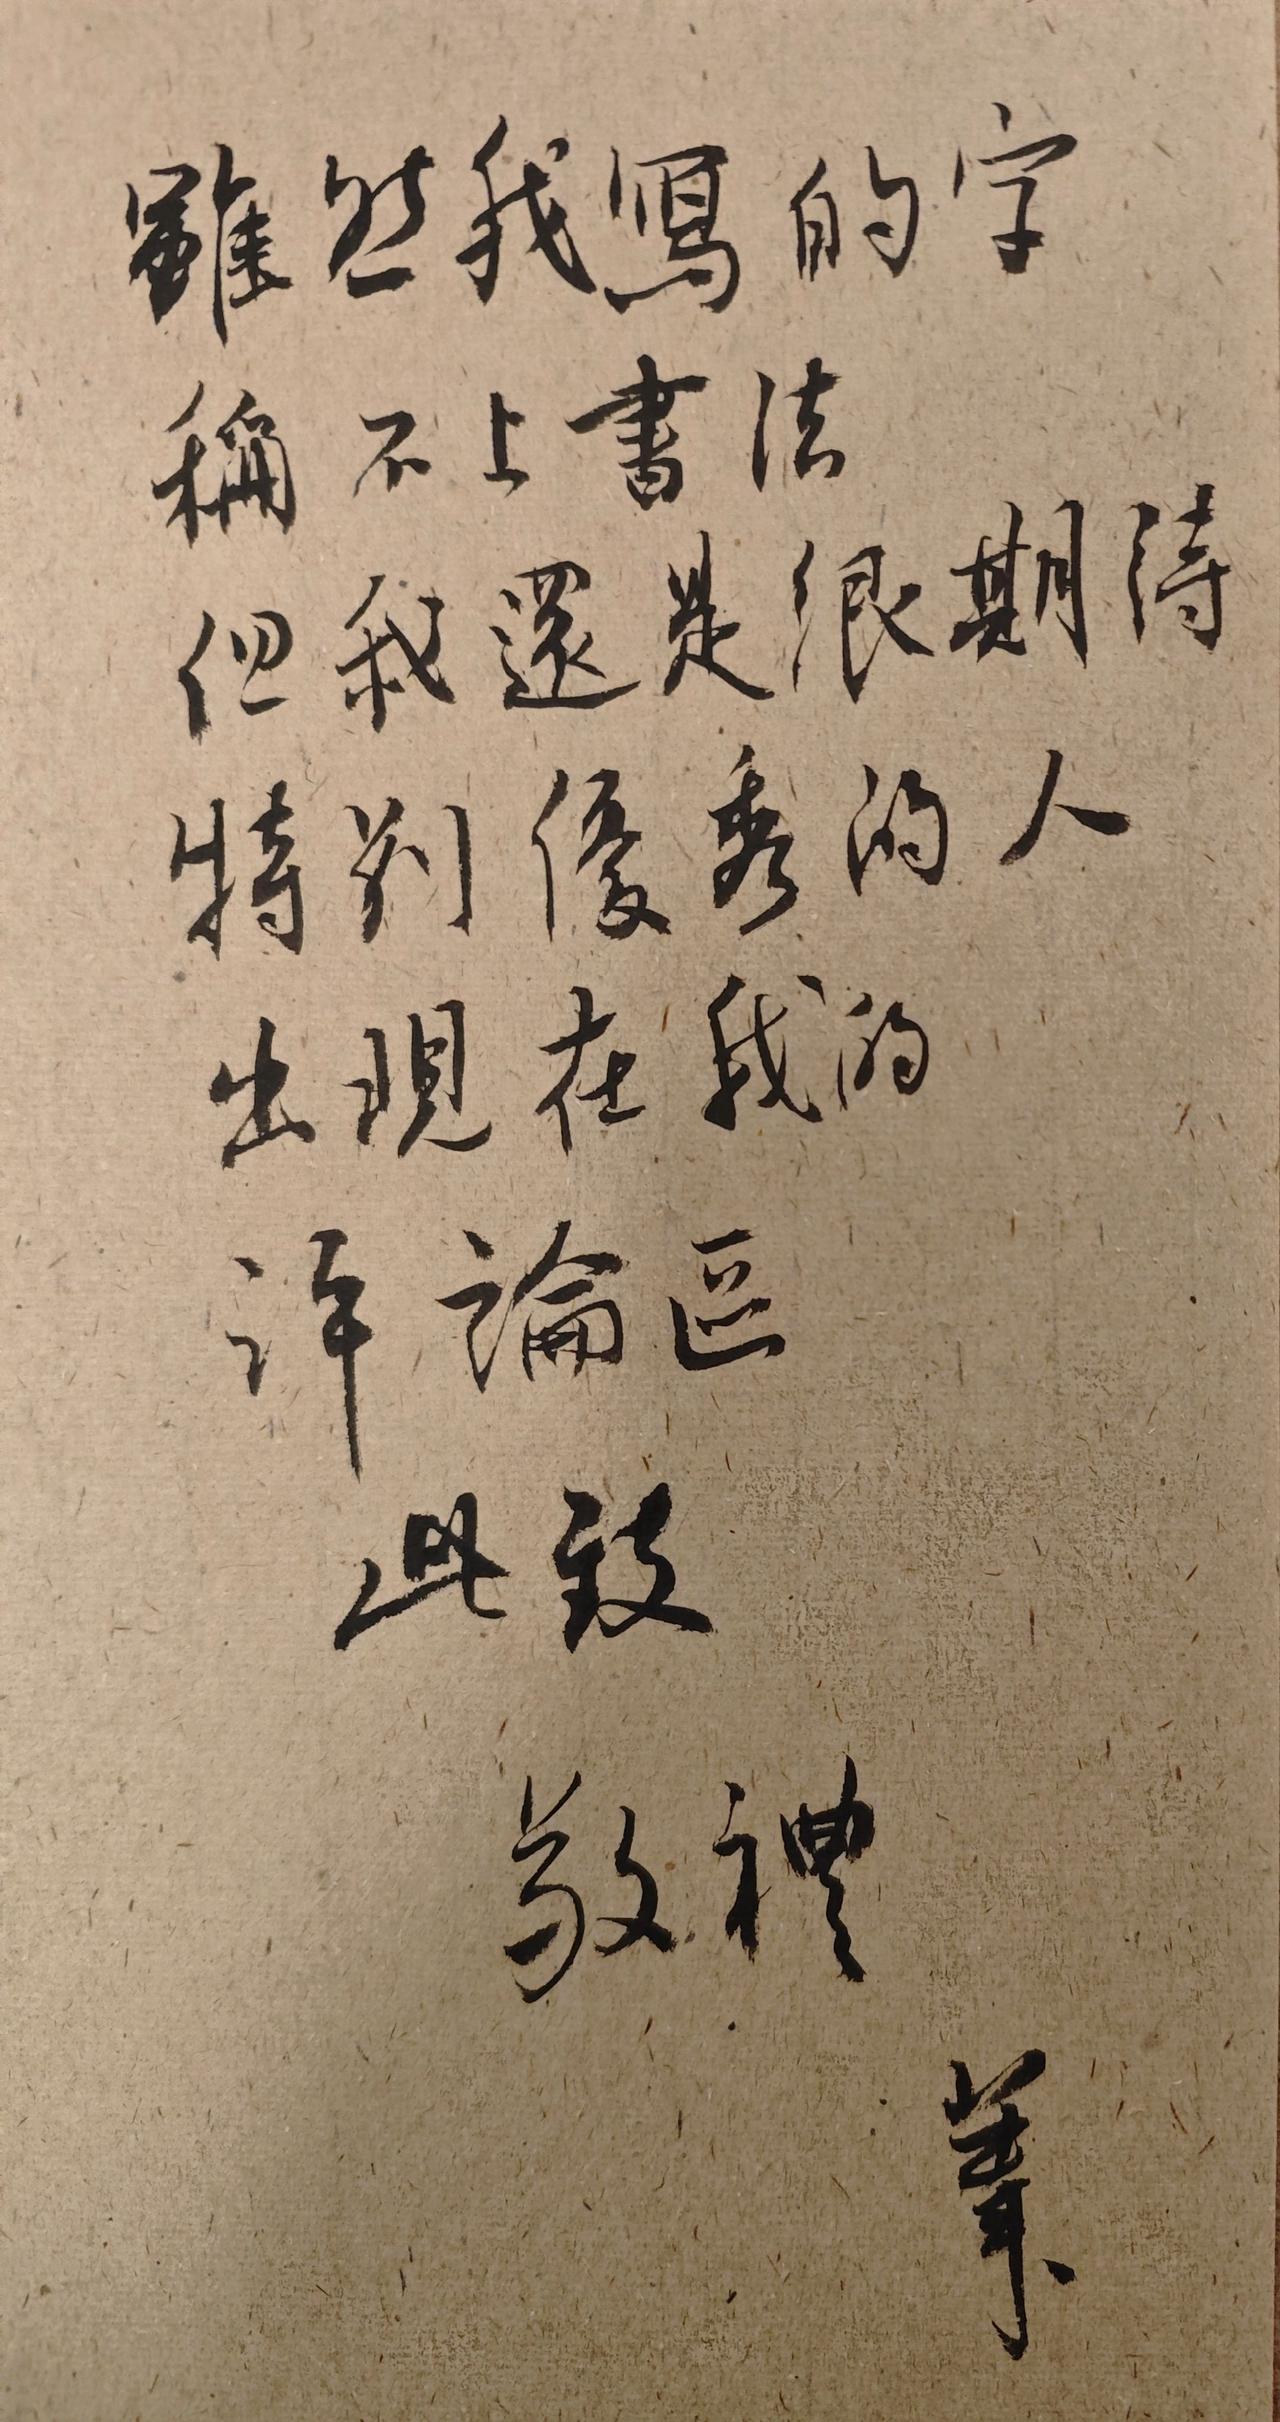 雖然我寫的字
稱不上書法
但我還是很期待
特別優秀的人
出現在我的
評論區
此致
敬禮